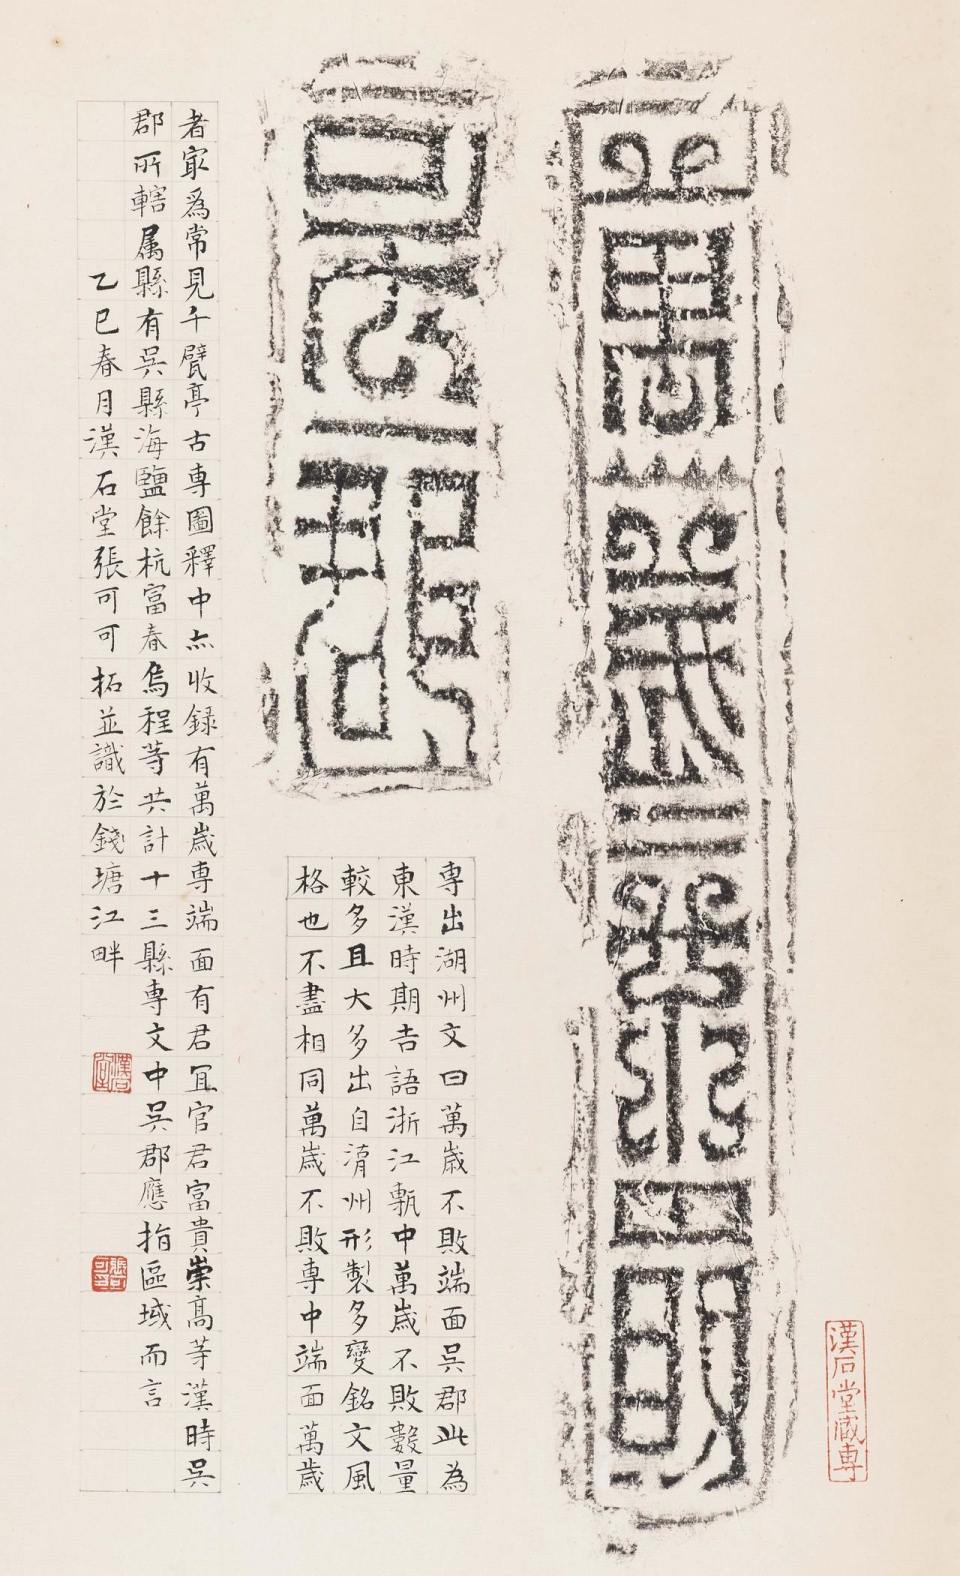 萬歲不敗
吳郡
漢石堂藏專
專出湖州文曰萬歲不敗端面吳郡此為
東漢時期吉語浙江甎中萬歲不敗數量
較多且大多出自湖州形製多變銘文風
格也不盡相同萬歲不敗專中端面萬歲
者㝡爲常見千甓亭古專圖釋中亦收録有萬歲專端面有君冝官君富貴崇高等漢時吳
郡所轄属縣有吳縣海鹽餘杭富春烏程等共計十三縣專文中吳郡應指區域而言
乙巳春月漢石堂張可可拓並識於錢塘江畔
漢石堂